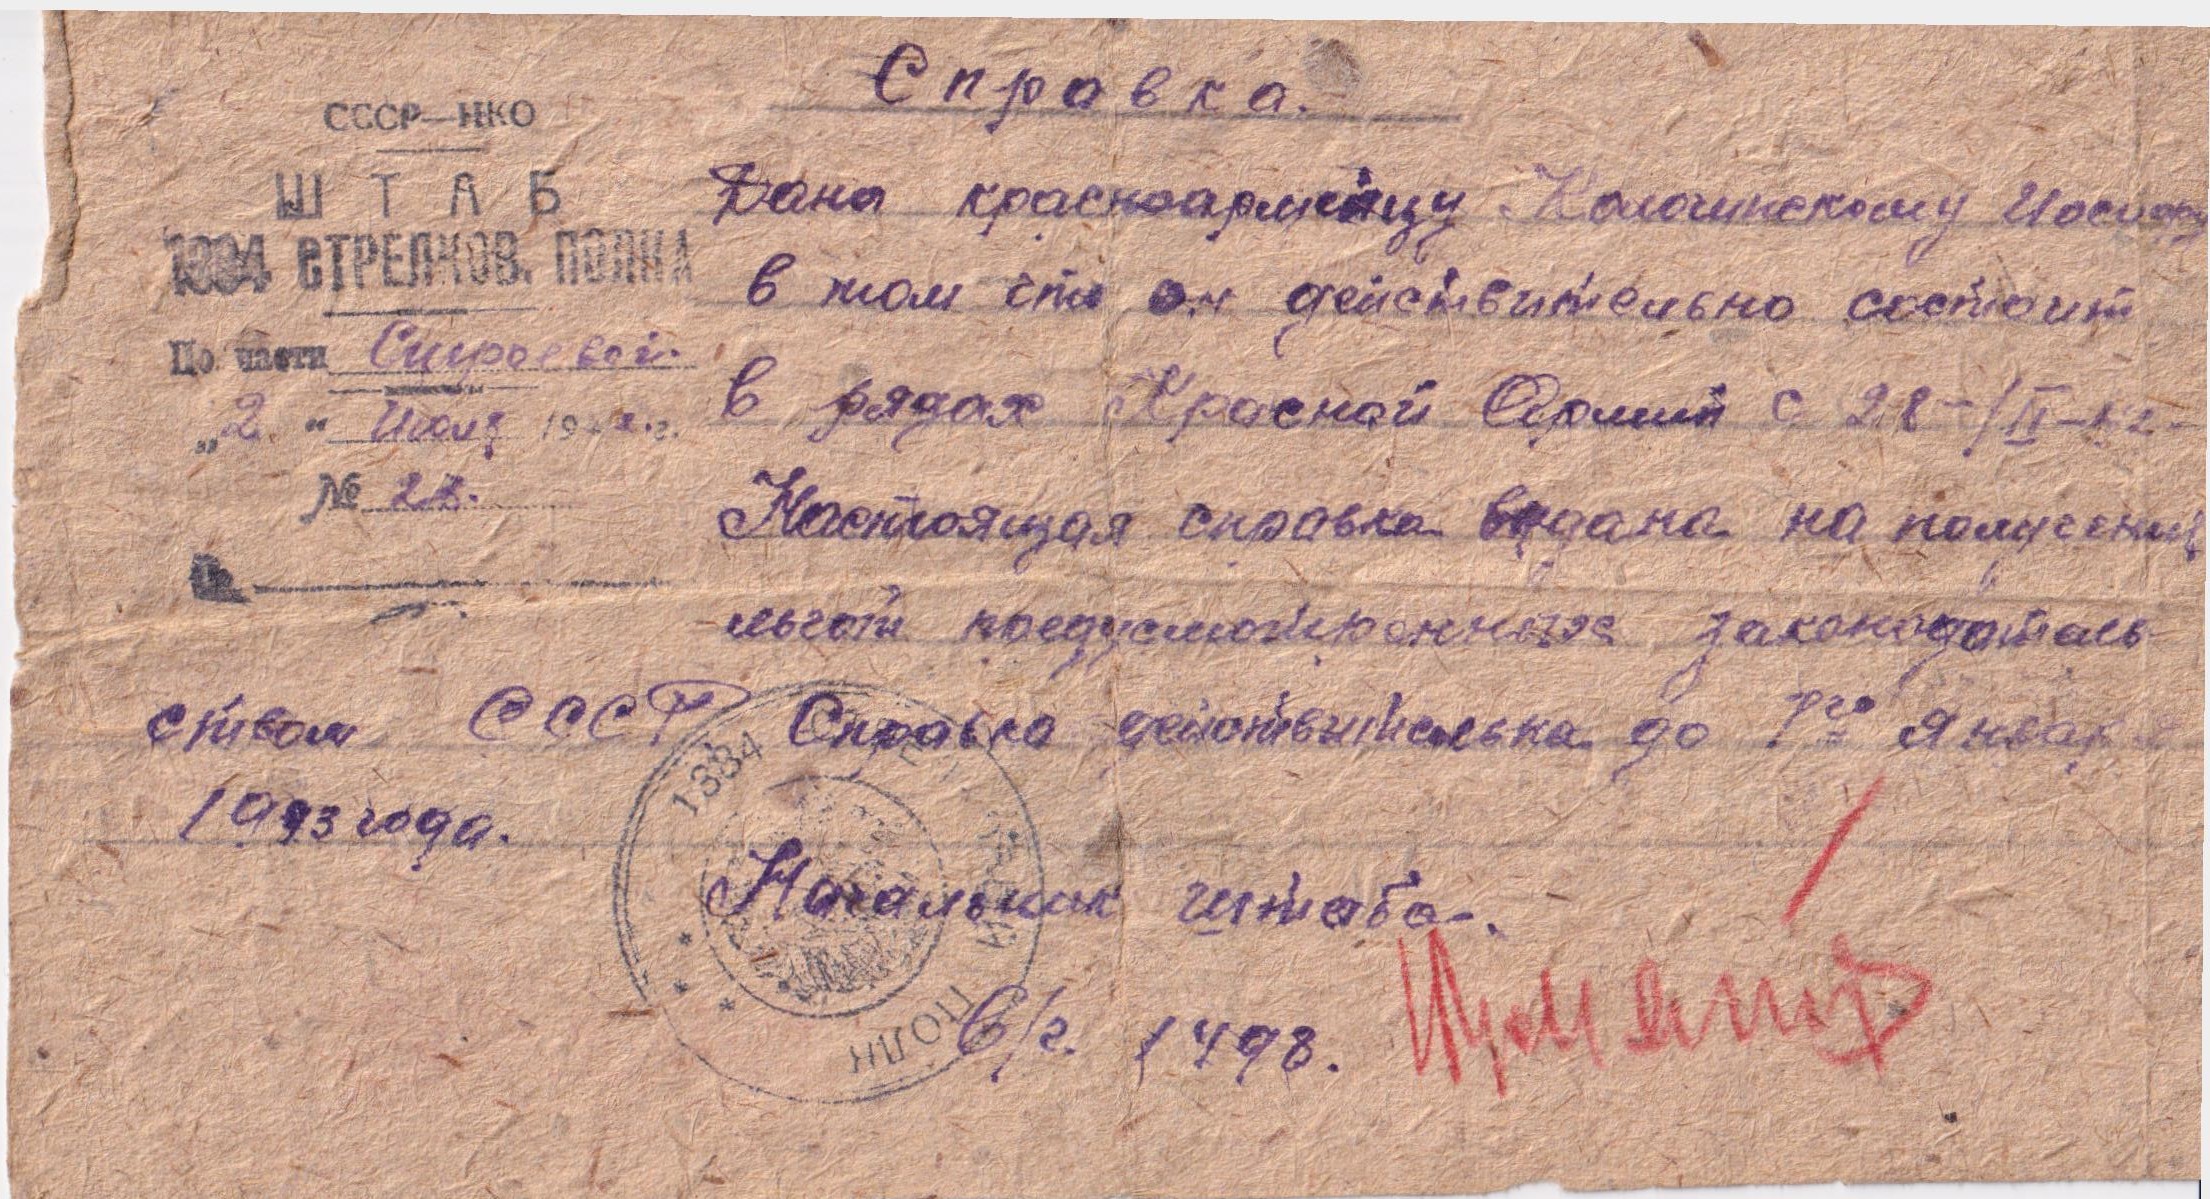 Справка.
СССР—НКО
ШТАБ
1384 СТРЕЛКОВ. ПОЛКА
По части Строевой.
„2" Июля 194 г.
№
Дана красноармейцу
в том что он действительно состоит
в рядах Красной Армии с 28-
Настоящая справка выдана на получений
льгот предусмотренных законодатель-
ством СССР Справка действительна до Января
1943 года.
Начальник штаба.
1498.
1384 ПОЛК